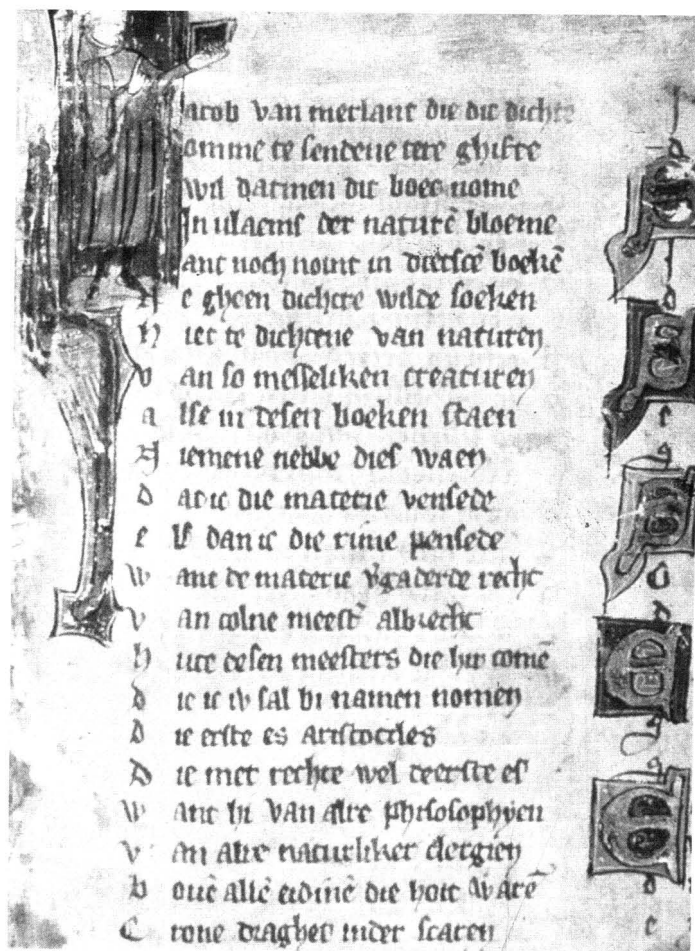 acob van merlant die dit dichte
omme te sendene tere ghifte
wil datmen dit boec nome
In vlaems der naturē bloeme
ant noch noint in dietscē boekē
e gheen dichtre wilde soeken
h iet te dichtene van naturen
v an so messeliken creaturen
a lse in desen boeken staen
N iemene hebbe dies waen
d at ic die materie vensede
e lf dan ic die rime pensede
w ant de materie v͛gaderde recht
v an colne meest͛ albrecht
h ute desen meesters die hir comē
d ie ic iv sal bi namen nomen
d ie erste es aristotiles
D ie met rechte wel teerste es
w ant hi van alre philosophyen
v an alre naturliker clergien
b ouē allē die noit warē
C rone draghet inder scaren